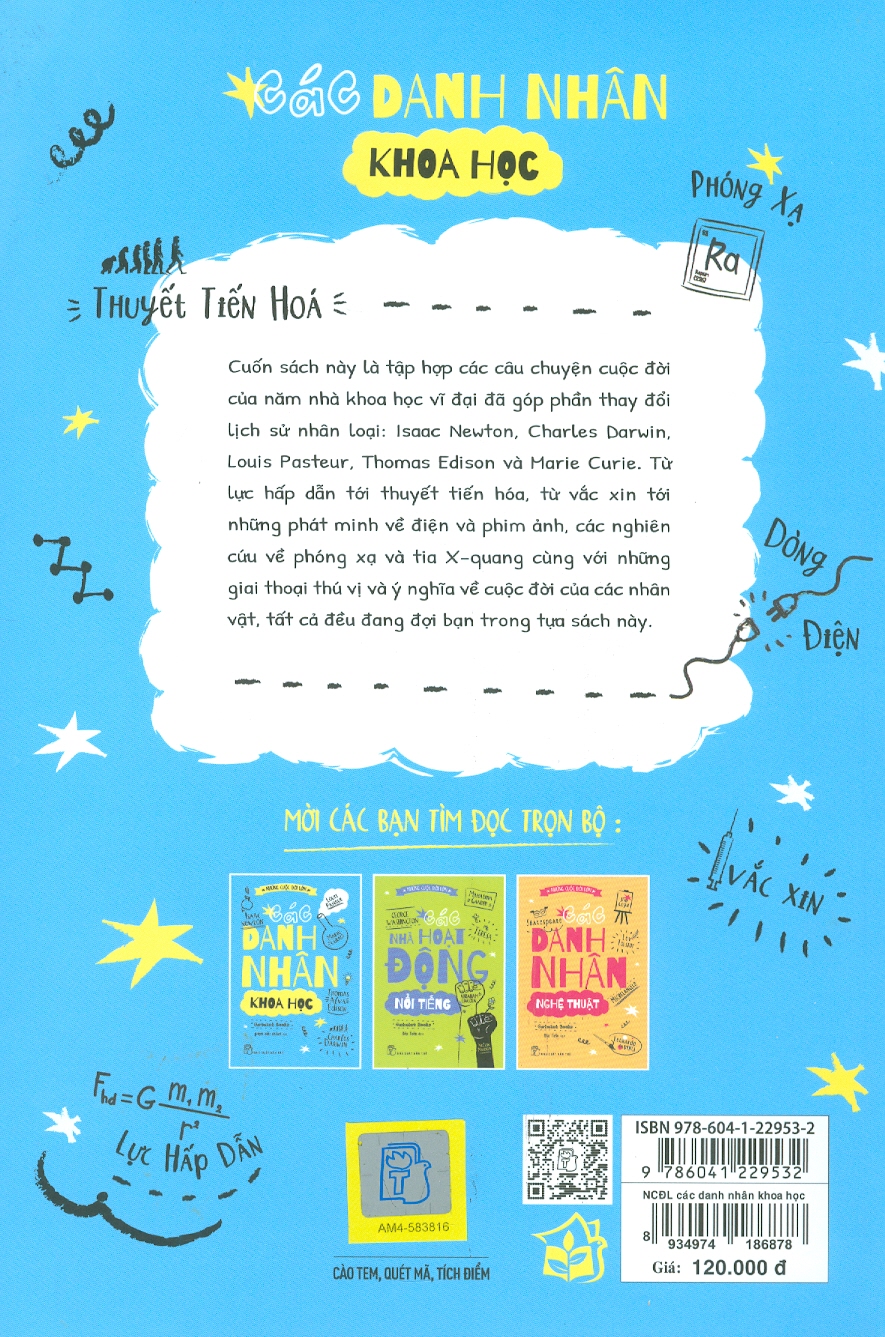 CÁC DANH NHÂN
KHOA HỌC
PHÓNG XẠ
Ra
THUYẾT TIẾN HOÁ
Cuốn sách này là tập hợp các câu chuyện cuộc đời
của năm nhà khoa học vĩ đại đã góp phần thay đổi
lịch sử nhân loại: Isaac Newton, Charles Darwin,
Louis Pasteur, Thomas Edison và Marie Curie. Từ
lực hấp dẫn tới thuyết tiến hóa, từ vắc xin tới
những phát minh về điện và phim ảnh, các nghiên
cứu về phóng xạ và tia X-quang cùng với những
giai thoại thú vị và ý nghĩa về cuộc đời của các nhân
vật, tất cả đều đang đợi bạn trong tựa sách này.
DÒNG
ĐIỆN
MỜI CÁC BẠN TÌM ĐỌC TRỌN BỘ :
VẮC XIN
NHỮNG CUỘC ĐỜI LỚN
CÁC
DANH
NHÂN
KHOA HỌC
NHỮNG CUỘC ĐỜI LỚN
CÁC
NHÀ HOẠT
ĐỘNG
NỔI TIẾNG
NHỮNG CUỘC ĐỜI LỚN
CÁC
DANH
NHÂN
NGHỆ THUẬT
Fhd = G m1 m2
r²
LỰC HẤP DẪN
T
AM4-583816
CÀO TEM, QUÉT MÃ, TÍCH ĐIỂM
ISBN 978-604-1-22953-2
9 786041 229532
NCĐL các danh nhân khoa học
8 934974 186878
Giá: 120.000 đ